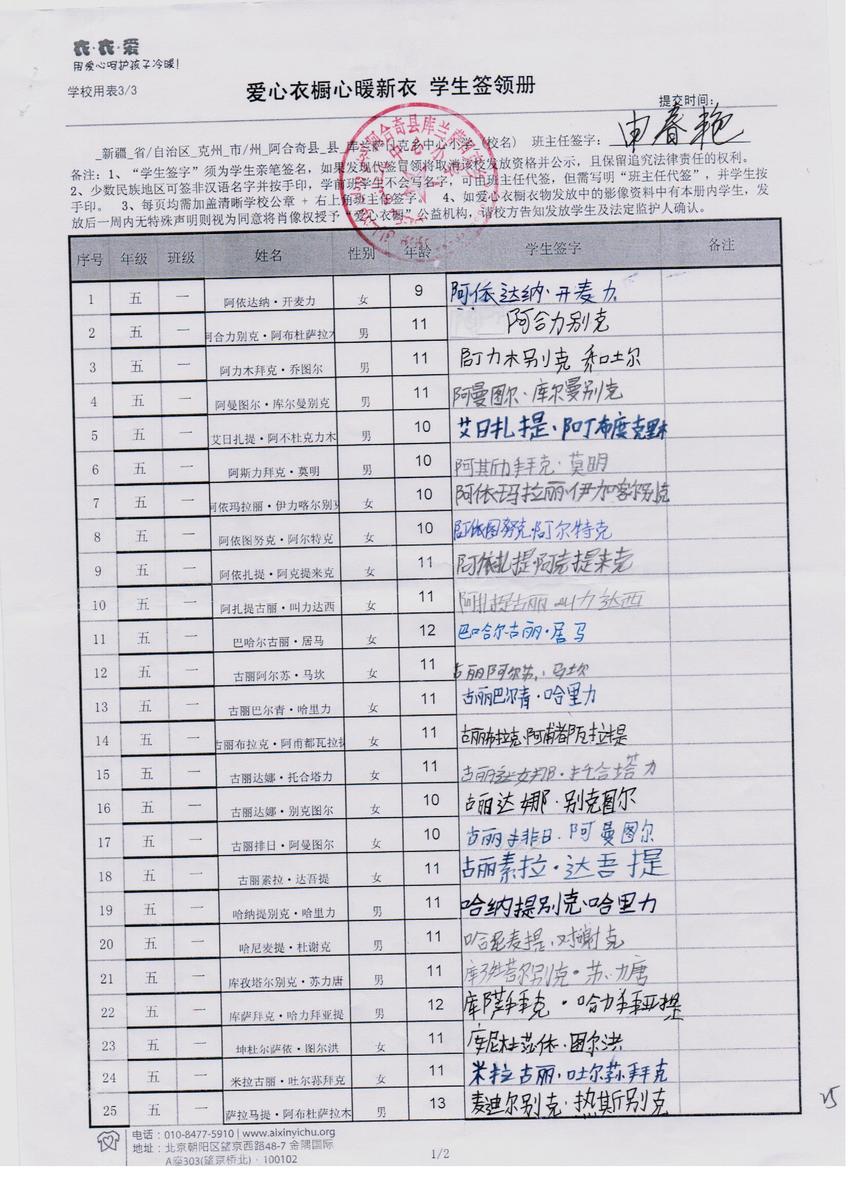 衣·衣·爱
用爱心呵护孩子冷暖!
学校用表3/3
爱心衣橱心暖新衣 学生签领册
提交时间:
_新疆_省/自治区_克州_市/州_阿合奇县_县_库兰萨日克乡中心小学(校名) 班主任签字: 申春艳
备注: 1、“学生签字”须为学生亲笔签名, 如果发现代签冒领将取消该校发放资格并公示, 且保留追究法律责任的权利。
2、少数民族地区可签非汉语名字并按手印, 学前班学生不会写名字, 可由班主任代签, 但需写明“班主任代签”, 并学生按
手印。 3、每页均需加盖清晰学校公章 + 右上角班主任签字。 4、如爱心衣橱衣物发放中的影像资料中有本册内学生, 发
放后一周内无特殊声明则视为同意将肖像权授予“爱心衣橱”公益机构, 请校方告知发放学生及法定监护人确认。
序号 年级 班级 姓名 性别 年龄 学生签字 备注
1 五 一 阿依达纳·开麦力 女 9 阿依达纳·开麦力
2 五 一 阿合力别克·阿布杜萨拉木 男 11 阿合力别克
3 五 一 阿力木拜克·乔图尔 男 11 阿力木别克
4 五 一 阿曼图尔·库尔曼别克 男 11 阿曼图尔·库尔曼别克
5 五 一 艾日扎提·阿不杜克力木 男 10 艾日扎提·阿丁布度克里木
6 五 一 阿斯力拜克·莫明 男 10 阿斯力拜克·莫明
7 五 一 阿依玛拉丽·伊力喀尔别克 女 10 阿依玛拉丽·伊力喀尔别克
8 五 一 阿依图努克·阿尔特克 女 10 阿依图努克·阿尔特克
9 五 一 阿依扎提·阿克提来克 女 11 阿依扎提·阿克提来克
10 五 一 阿扎提古丽·叫力达西 女 11 阿扎提古丽·叫力达西
11 五 一 巴哈尔古丽·居马 女 12 巴哈尔古丽·居马
12 五 一 古丽阿尔苏·马坎 女 11 古丽阿尔苏·马坎
13 五 一 古丽巴尔青·哈里力 女 11 古丽巴尔青·哈里力
14 五 一 古丽布拉克·阿甫都瓦拉提 女 11 古丽布拉克·阿甫都瓦拉提
15 五 一 古丽达娜·托合塔力 女 11 古丽达娜·托合塔力
16 五 一 古丽达娜·别克图尔 女 10 古丽达娜·别克图尔
17 五 一 古丽排日·阿曼图尔 女 10 古丽排日·阿曼图尔
18 五 一 古丽素拉·达吾提 女 11 古丽素拉·达吾提
19 五 一 哈纳提别克·哈里力 男 11 哈纳提别克·哈里力
20 五 一 哈尼麦提·杜谢克 男 11 哈尼麦提·对谢克
21 五 一 库孜塔尔别克·苏力唐 男 11 库孜塔尔别克·苏力唐
22 五 一 库萨拜克·哈力拜亚提 男 12 库萨拜克·哈力拜亚提
23 五 一 坤杜尔萨依·图尔洪 女 11 库尼杜莎依·图尔洪
24 五 一 米拉古丽·吐尔荪拜克 女 11 米拉古丽·吐尔荪拜克
25 五 一 萨拉马提·阿布杜萨拉木 男 13 麦迪尔别克·热斯别克
25
电话: 010-8477-5910 | www.aixinyichu.org
地址: 北京朝阳区望京西路48-7 金隅国际
A座303(望京桥北) · 100102
1/2